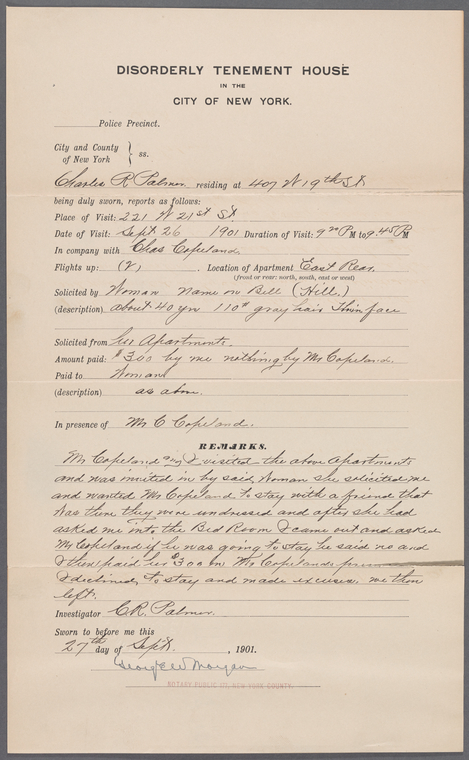 DISORDERLY TENEMENT HOUSE
IN THE
CITY OF NEW YORK.
Police Precinct.
City and County
of New York } ss.
Charles R Palmer residing at 407 W 19th St
being duly sworn, reports as follows:
Place of Visit: 221 W 21st St
Date of Visit: Sept 26 1901 Duration of Visit: 9 20 P M to 9.45 P M
In company with Chas Copeland
Flights up: (2) Location of Apartment East Rear
(front or rear: north, south, east or west)
Solicited by Woman Name on Bell (Hill.)
(description) about 40 yrs 110# gray hair Thin face
Solicited from her Apartments
Amount paid: $3 00 by me nothing by Mr Copeland
Paid to Woman
(description) as above.
In presence of Mr C Copeland.
REMARKS.
Mr Copeland and I visited the above Apartments
and was invited in by said Woman she solicited me
and wanted Mr Copeland to stay with a friend that
was there they were undressed and after she had
asked me into the Bed Room I came out and asked
Mr Copeland if he was going to stay he said no and
I then paid her $3 00 in Mr Copelands
I declined to stay and made excuses, we then
left.
Investigator C.R. Palmer
Sworn to before me this
27th day of Sept. , 1901.
George W Morgan
NOTARY PUBLIC NEW YORK COUNTY.